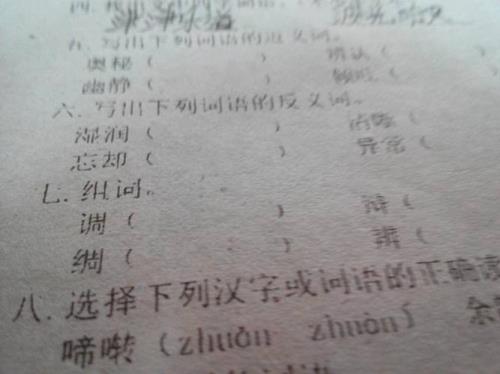 五. 写出下列词语的近义词。
奥秘（ ） 辨认（ ）
幽静（ ）
六. 写出下列词语的反义词。
湿润（ ） 清晰（
忘却（ ） 异常（
七. 组词。
调（ ） 辩（
绸（ ） 辨（
八. 选择下列汉字或词语的正确读
啼啭（zhuǎn zhuàn） 余